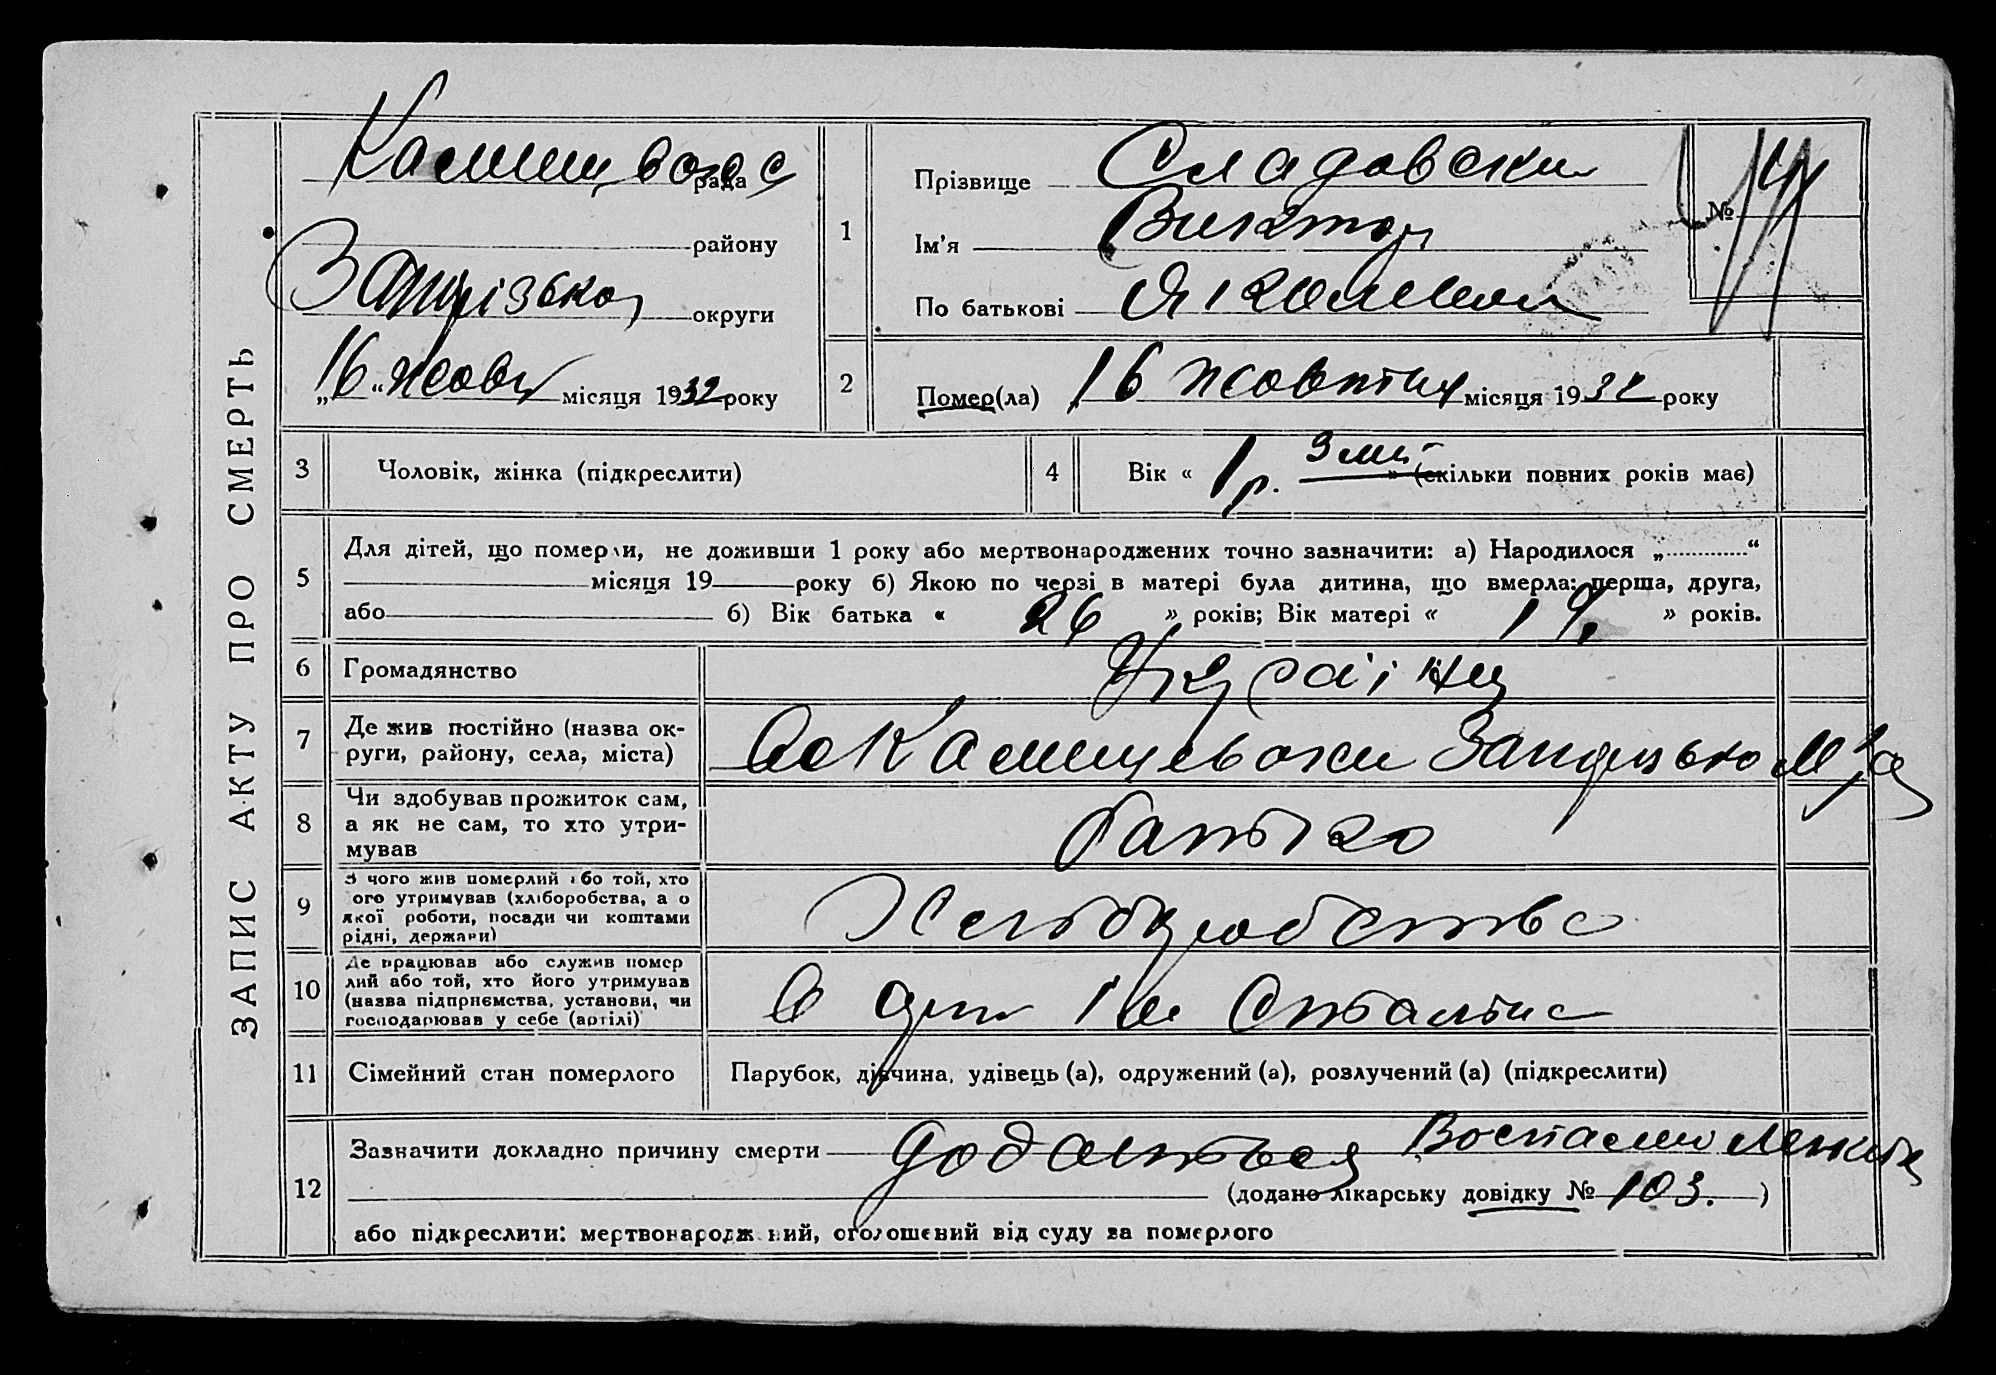 ЗАПИС АКТУ ПРО СМЕРТЬ
рада
району
округи
„16“ місяця 1932 року
1
Прізвище Сладовски
Ім'я Виктор
По батькові
№
2
Помер(ла) 16 жовтня місяця 1932 року
3 Чоловік, жінка (підкреслити)
4 Вік « 1 р. 3 міс » (скільки повних років має)
5
Для дітей, що померли, не доживши 1 року або мертвонароджених точно зазначити: а) Народилося „ “
місяця 19 року б) Якою по черзі в матері була дитина, що вмерла: перша, друга,
або б) Вік батька « 26 » років; Вік матері « 19 » років.
6 Громадянство Українц
7 Де жив постійно (назва ок-
руги, району, села, міста)
8 Чи здобував прожиток сам,
а як не сам, то хто утри-
мував
батько
9 З чого жив померлий або той, хто
ого утримував (хліборобства, а о
якої роботи, посади чи коштами
рідні, держави)
10 Де працював або служив помер
лий або той, хто його утримував
(назва підприємства, установи, чи
господарював у себе (артілі)
в арт Ім Сталіна
11 Сімейний стан померлого Парубок, дівчина, удівець (а), одружений (а), розлучений (а) (підкреслити)
12
Зазначити докладно причину смерти
(додано лікарську довідку № 103. )
або підкреслити: мертвонародж ний, оголошений від суду за померлого